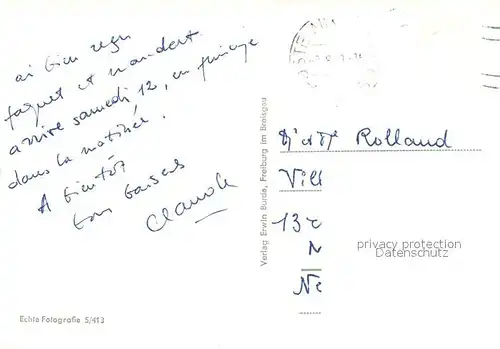 ai bien reçu
paquet et mandat.
arrive samedi 12, en principe
dans la matinée.
A bientôt
bons baisers
Claude
Rolland
Vill
13
N
Ne
privacy protection
Datenschutz
Verlag Erwin Burda, Freiburg im Breisgau
Echte Fotografie 5/413